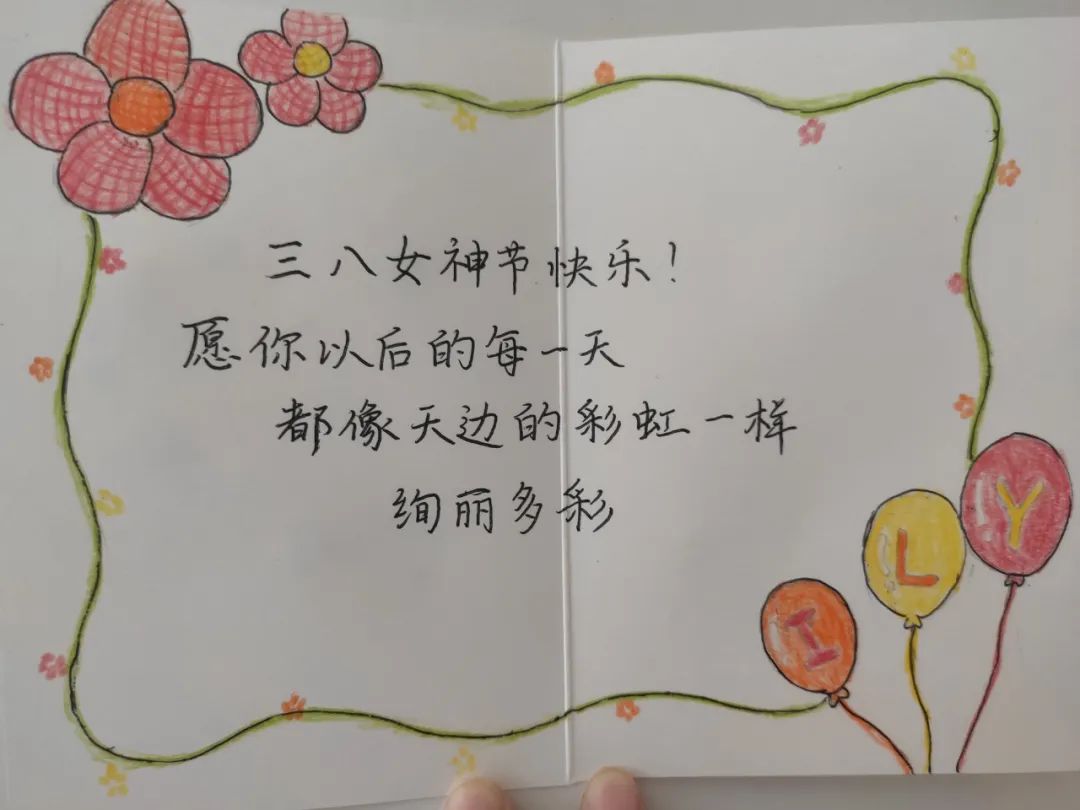 三八女神节快乐!
愿你以后的每一天
都像天边的彩虹一样
绚丽多彩
I L Y